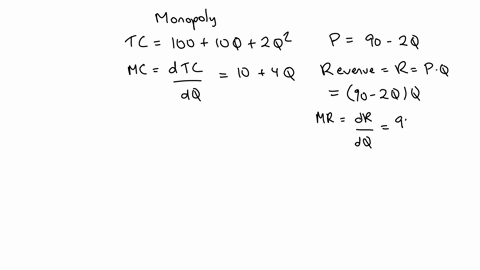 Monopoly
TC = 100 + 10Q + 2Q²
MC = dTC/dQ = 10 + 4Q
P = 90 - 2Q
Revenue = R = P·Q
= (90 - 2Q)Q
MR = dR/dQ = 9